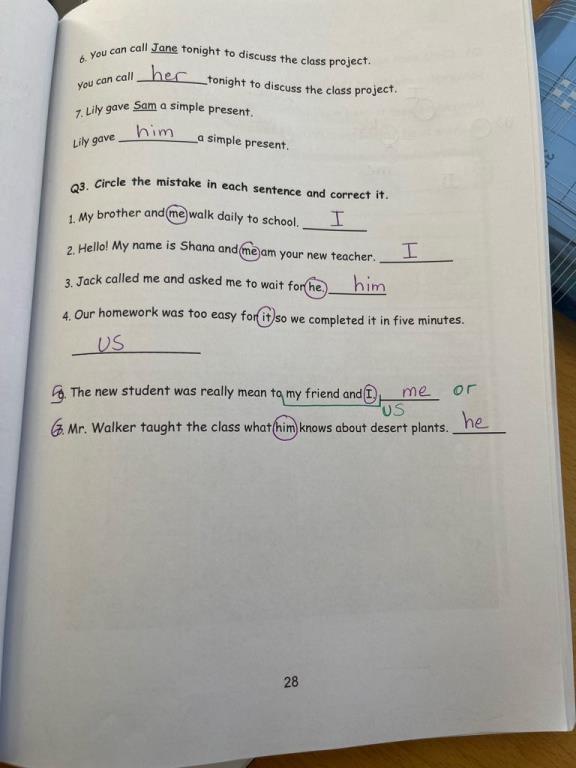 6. You can call Jane tonight to discuss the class project.
You can call her tonight to discuss the class project.
7. Lily gave Sam a simple present.
Lily gave him a simple present.
Q3. Circle the mistake in each sentence and correct it.
1. My brother and me walk daily to school. I
2. Hello! My name is Shana and me am your new teacher. I
3. Jack called me and asked me to wait for he. him
4. Our homework was too easy for it so we completed it in five minutes.
us
5. The new student was really mean to my friend and I. me or
us
6. Mr. Walker taught the class what him knows about desert plants. he
28